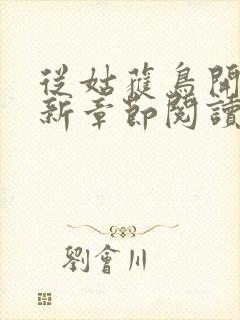 從姑獲鳥開
新章節閱讀
劉會川